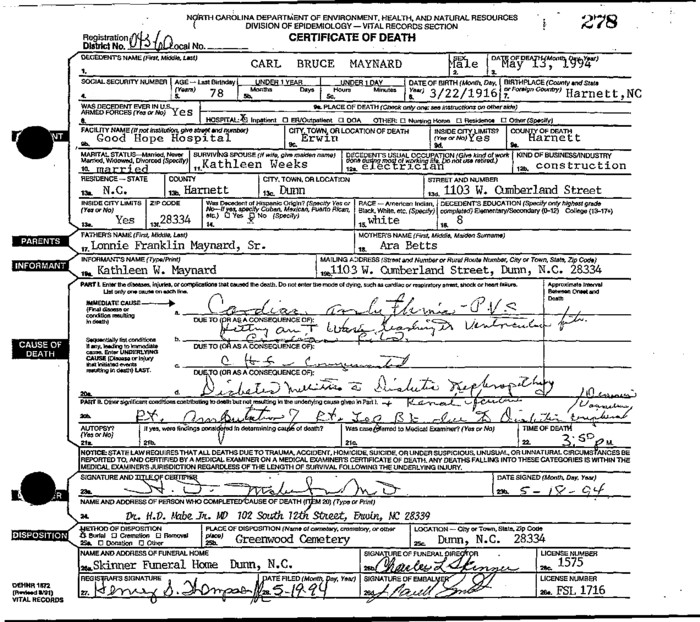 NORTH CAROLINA DEPARTMENT OF ENVIRONMENT, HEALTH, AND NATURAL RESOURCES
DIVISION OF EPIDEMIOLOGY — VITAL RECORDS SECTION
278
CERTIFICATE OF DEATH
Registration District No. Local No.
DECEDENT'S NAME (First, Middle, Last) SEX DATE OF DEATH (Month, Day, Year)
1. CARL BRUCE MAYNARD 2. Male 3. May 13, 1994
SOCIAL SECURITY NUMBER AGE — Last Birthday (Years) UNDER 1 YEAR Months Days UNDER 1 DAY Hours Minutes DATE OF BIRTH (Month, Day, Year) BIRTHPLACE (County and State or Foreign Country)
4. 5a. 78 5b. 5c. 6. 3/22/1916 7. Harnett, NC
WAS DECEDENT EVER IN U.S. ARMED FORCES (Yes or No) Yes
8.
9a. PLACE OF DEATH (Check only one: see instructions on other side)
HOSPITAL: Inpatient ER/Outpatient DOA OTHER: Nursing Home Residence Other (Specify)
FACILITY NAME (If not institution, give street and number) CITY, TOWN, OR LOCATION OF DEATH INSIDE CITY LIMITS? (Yes or No) COUNTY OF DEATH
9b. Good Hope Hospital 9c. Erwin 9d. Yes 9e. Harnett
MARITAL STATUS — Married, Never Married, Widowed, Divorced (Specify) SURVIVING SPOUSE (If wife, give maiden name) DECEDENT'S USUAL OCCUPATION (Give kind of work done during most of working life. Do not use retired.) KIND OF BUSINESS/INDUSTRY
10. married 11. Kathleen Weeks 12a. electrician 12b. construction
RESIDENCE — STATE COUNTY CITY, TOWN, OR LOCATION STREET AND NUMBER
13a. N.C. 13b. Harnett 13c. Dunn 13d. 1103 W. Cumberland Street
INSIDE CITY LIMITS (Yes or No) ZIP CODE Was Decedent of Hispanic Origin? (Specify Yes or No—If yes, specify Cuban, Mexican, Puerto Rican, etc.) Yes No (Specify) RACE — American Indian, Black, White, etc. (Specify) DECEDENT'S EDUCATION (Specify only highest grade completed) Elementary/Secondary (0-12) College (13-17+)
13e. Yes 13f. 28334 14. 15. white 16. 8
PARENTS
FATHER'S NAME (First, Middle, Last) MOTHER'S NAME (First, Middle, Maiden Surname)
17. Lonnie Franklin Maynard, Sr. 18. Ara Betts
INFORMANT
INFORMANT'S NAME (Type/Print) MAILING ADDRESS (Street and Number or Rural Route Number, City or Town, State, Zip Code)
19a. Kathleen W. Maynard 19b. 1103 W. Cumberland Street, Dunn, N.C. 28334
PART I. Enter the diseases, injuries, or complications that caused the death. Do not enter the mode of dying, such as cardiac or respiratory arrest, shock or heart failure. Approximate Interval Between Onset and Death
List only one cause on each line.
CAUSE OF DEATH
IMMEDIATE CAUSE (Final disease or condition resulting in death) a. Cardiac - P.V.S
DUE TO (OR AS A CONSEQUENCE OF):
Sequentially list conditions if any, leading to immediate cause. Enter UNDERLYING CAUSE (Disease or injury that initiated events resulting in death) LAST.
b.
DUE TO (OR AS A CONSEQUENCE OF):
c. CHF
DUE TO (OR AS A CONSEQUENCE OF):
20a. d. Diabetes Mellitus Diabetic Nephropathy
PART II. Other significant conditions contributing to death but not resulting in the underlying cause given in Part I. Renal
20b. Rt. Amputation Rt. Leg
AUTOPSY? (Yes or No) If yes, were findings considered in determining cause of death? Was case referred to Medical Examiner? (Yes or No) TIME OF DEATH
21a. 21b. 21c. 22. 3:50 PM
NOTICE: STATE LAW REQUIRES THAT ALL DEATHS DUE TO TRAUMA, ACCIDENT, HOMICIDE, SUICIDE, OR UNDER SUSPICIOUS, UNUSUAL, OR UNNATURAL CIRCUMSTANCES BE REPORTED TO, AND CERTIFIED BY A MEDICAL EXAMINER ON A MEDICAL EXAMINER'S CERTIFICATE OF DEATH. ANY DEATHS FALLING INTO THESE CATEGORIES IS WITHIN THE MEDICAL EXAMINER'S JURISDICTION REGARDLESS OF THE LENGTH OF SURVIVAL FOLLOWING THE UNDERLYING INJURY.
SIGNATURE AND TITLE OF CERTIFIER DATE SIGNED (Month, Day, Year)
23a. H. D. Mabe Jr MD 23b. 5-18-94
NAME AND ADDRESS OF PERSON WHO COMPLETED CAUSE OF DEATH (ITEM 20) (Type or Print)
24. Dr. H.D. Mabe Jr. MD 102 South 12th Street, Erwin, NC 28339
DISPOSITION
METHOD OF DISPOSITION Burial Cremation Removal Donation Other PLACE OF DISPOSITION (Name of cemetery, crematory, or other place) LOCATION — City or Town, State, Zip Code
25a. 25b. Greenwood Cemetery 25c. Dunn, N.C. 28334
NAME AND ADDRESS OF FUNERAL HOME SIGNATURE OF FUNERAL DIRECTOR LICENSE NUMBER
26a. Skinner Funeral Home Dunn, N.C. 26b. Charles L Skinner 26c. 1575
REGISTRAR'S SIGNATURE DATE FILED (Month, Day, Year) SIGNATURE OF EMBALMER LICENSE NUMBER
27. Henry S. Thompson 28. 5-19-94 26d. 26e. FSL 1716
DEHNR 1872
(Revised 8/91)
VITAL RECORDS